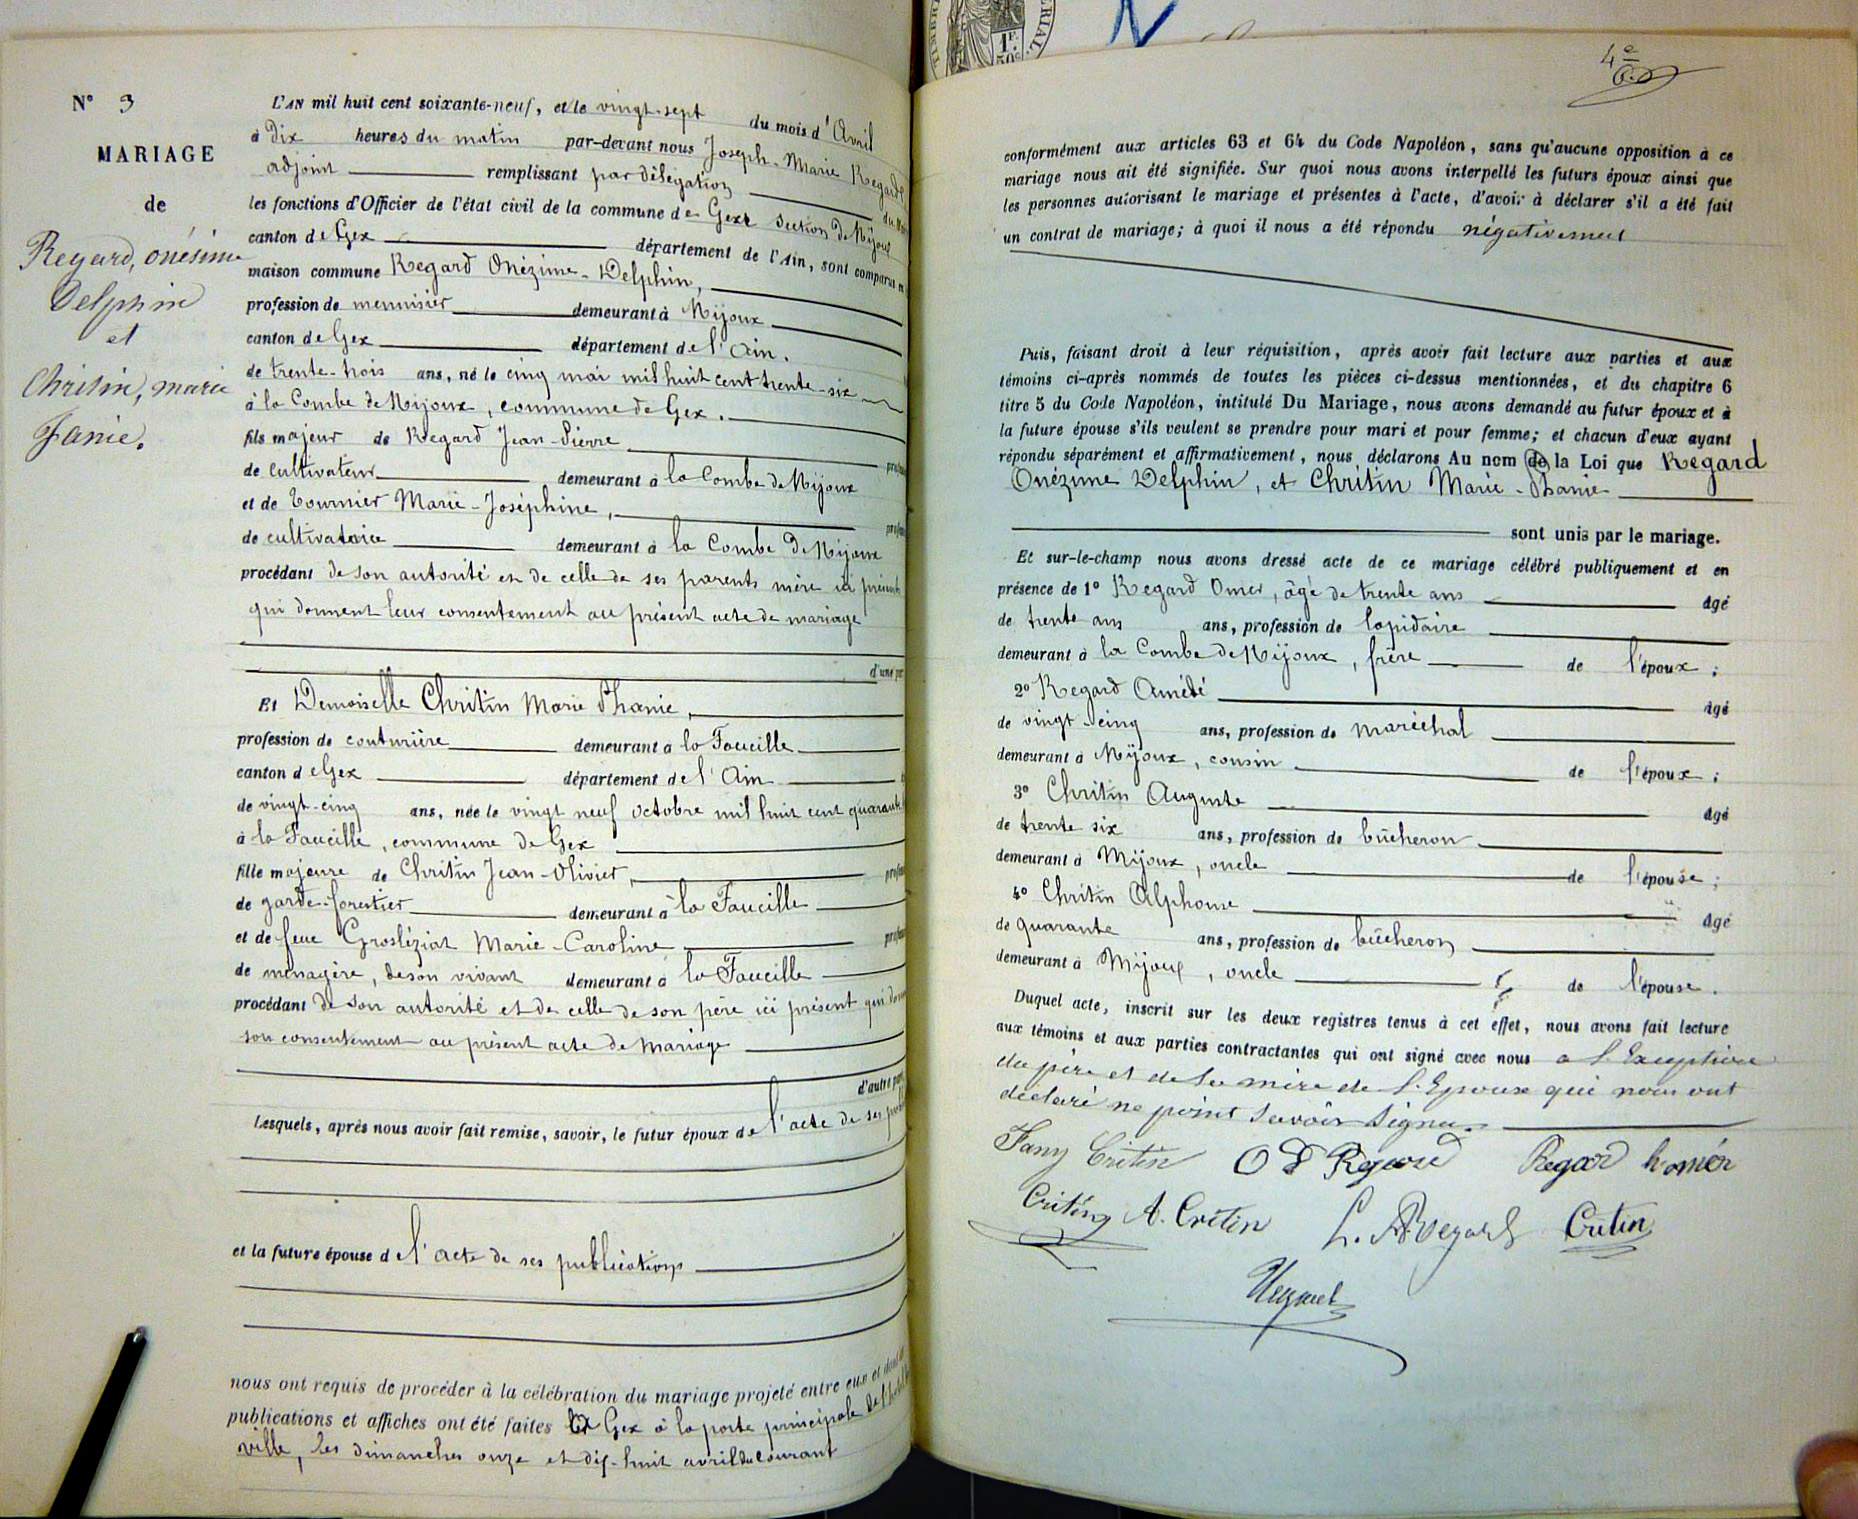 N° 3
MARIAGE
de
Regard, onésime
Delphin
et
Chritin, marie
Fanie.
L'AN mil huit cent soixante-neuf, et le vingt-sept du mois d'Avril
à Dix heures du matin par-devant nous Joseph-Marie Regard
adjoint remplissant par délégation du
les fonctions d'Officier de l'état civil de la commune de Gex section de Mijoux
canton de Gex département de l'Ain, sont comparus en
maison commune Regard Onézime-Delphin,
profession de menuisier demeurant à Mijoux
canton de Gex département de l'Ain.
de trente-trois ans, né le cinq mai mil huit cent trente-six
à la Combe de Mijoux, commune de Gex.
fils majeur de Regard Jean-Pierre
de cultivateur demeurant à la Combe de Mijoux
et de Tournier Marie-Joséphine,
de cultivatrice demeurant à la Combe de Mijoux
procédant de son autorité et de celle de ses parents mère ici présents
qui donnent leur consentement au présent acte de mariage
d'une part
Et Demoiselle Chritin Marie Phanie,
profession de couturière demeurant à la Faucille
canton de Gex département de l'Ain
de vingt-cinq ans, née le vingt neuf octobre mil huit cent quarante
à la Faucille, commune de Gex
fille majeure de Chritin Jean-Olivier,
de garde-forestier demeurant à la Faucille
et de feue Grosléziat Marie-Caroline
de ménagère, de son vivant demeurant à la Faucille
procédant de son autorité et de celle de son père ici présent qui donne
son consentement au présent acte de mariage
d'autre part
Lesquels, après nous avoir fait remise, savoir, le futur époux de l'acte de ses
et la future épouse de l'acte de ses publications
nous ont requis de procéder à la célébration du mariage projeté entre eux et dont les
publications et affiches ont été faites à Gex à la porte principale de l'hôtel de
ville, les dimanches onze et dix-huit avril du courant
TIMBRE
1F. 50c
4e
conformément aux articles 63 et 64 du Code Napoléon, sans qu'aucune opposition à ce
mariage nous ait été signifiée. Sur quoi nous avons interpellé les futurs époux ainsi que
les personnes autorisant le mariage et présentes à l'acte, d'avoir à déclarer s'il a été fait
un contrat de mariage; à quoi il nous a été répondu négativement
Puis, faisant droit à leur réquisition, après avoir fait lecture aux parties et aux
témoins ci-après nommés de toutes les pièces ci-dessus mentionnées, et du chapitre 6
titre 5 du Code Napoléon, intitulé Du Mariage, nous avons demandé au futur époux et à
la future épouse s'ils veulent se prendre pour mari et pour femme; et chacun d'eux ayant
répondu séparément et affirmativement, nous déclarons Au nom de la Loi que Regard
Onézime Delphin, et Chritin Marie-Phanie
sont unis par le mariage.
Et sur-le-champ nous avons dressé acte de ce mariage célébré publiquement et en
présence de 1° Regard Omer, âgé de trente ans âgé
de trente ans ans, profession de lapidaire
demeurant à la Combe de Mijoux, frère de l'époux;
2° Regard Amédé âgé
de vingt-cinq ans, profession de maréchal
demeurant à Mijoux, cousin de l'époux;
3° Chritin Auguste âgé
de trente six ans, profession de bûcheron
demeurant à Mijoux, oncle de l'épouse;
4° Chritin Alphonse âgé
de quarante ans, profession de bûcheron
demeurant à Mijoux, oncle de l'épouse.
Duquel acte, inscrit sur les deux registres tenus à cet effet, nous avons fait lecture
aux témoins et aux parties contractantes qui ont signé avec nous a l'Exception
du père et de la mère de l'Epoux qui nous ont
déclaré ne point savoir signer.
Fany Critin O D Regard Regard homér
Critin A. Critin L. A Regard Critin
Regard